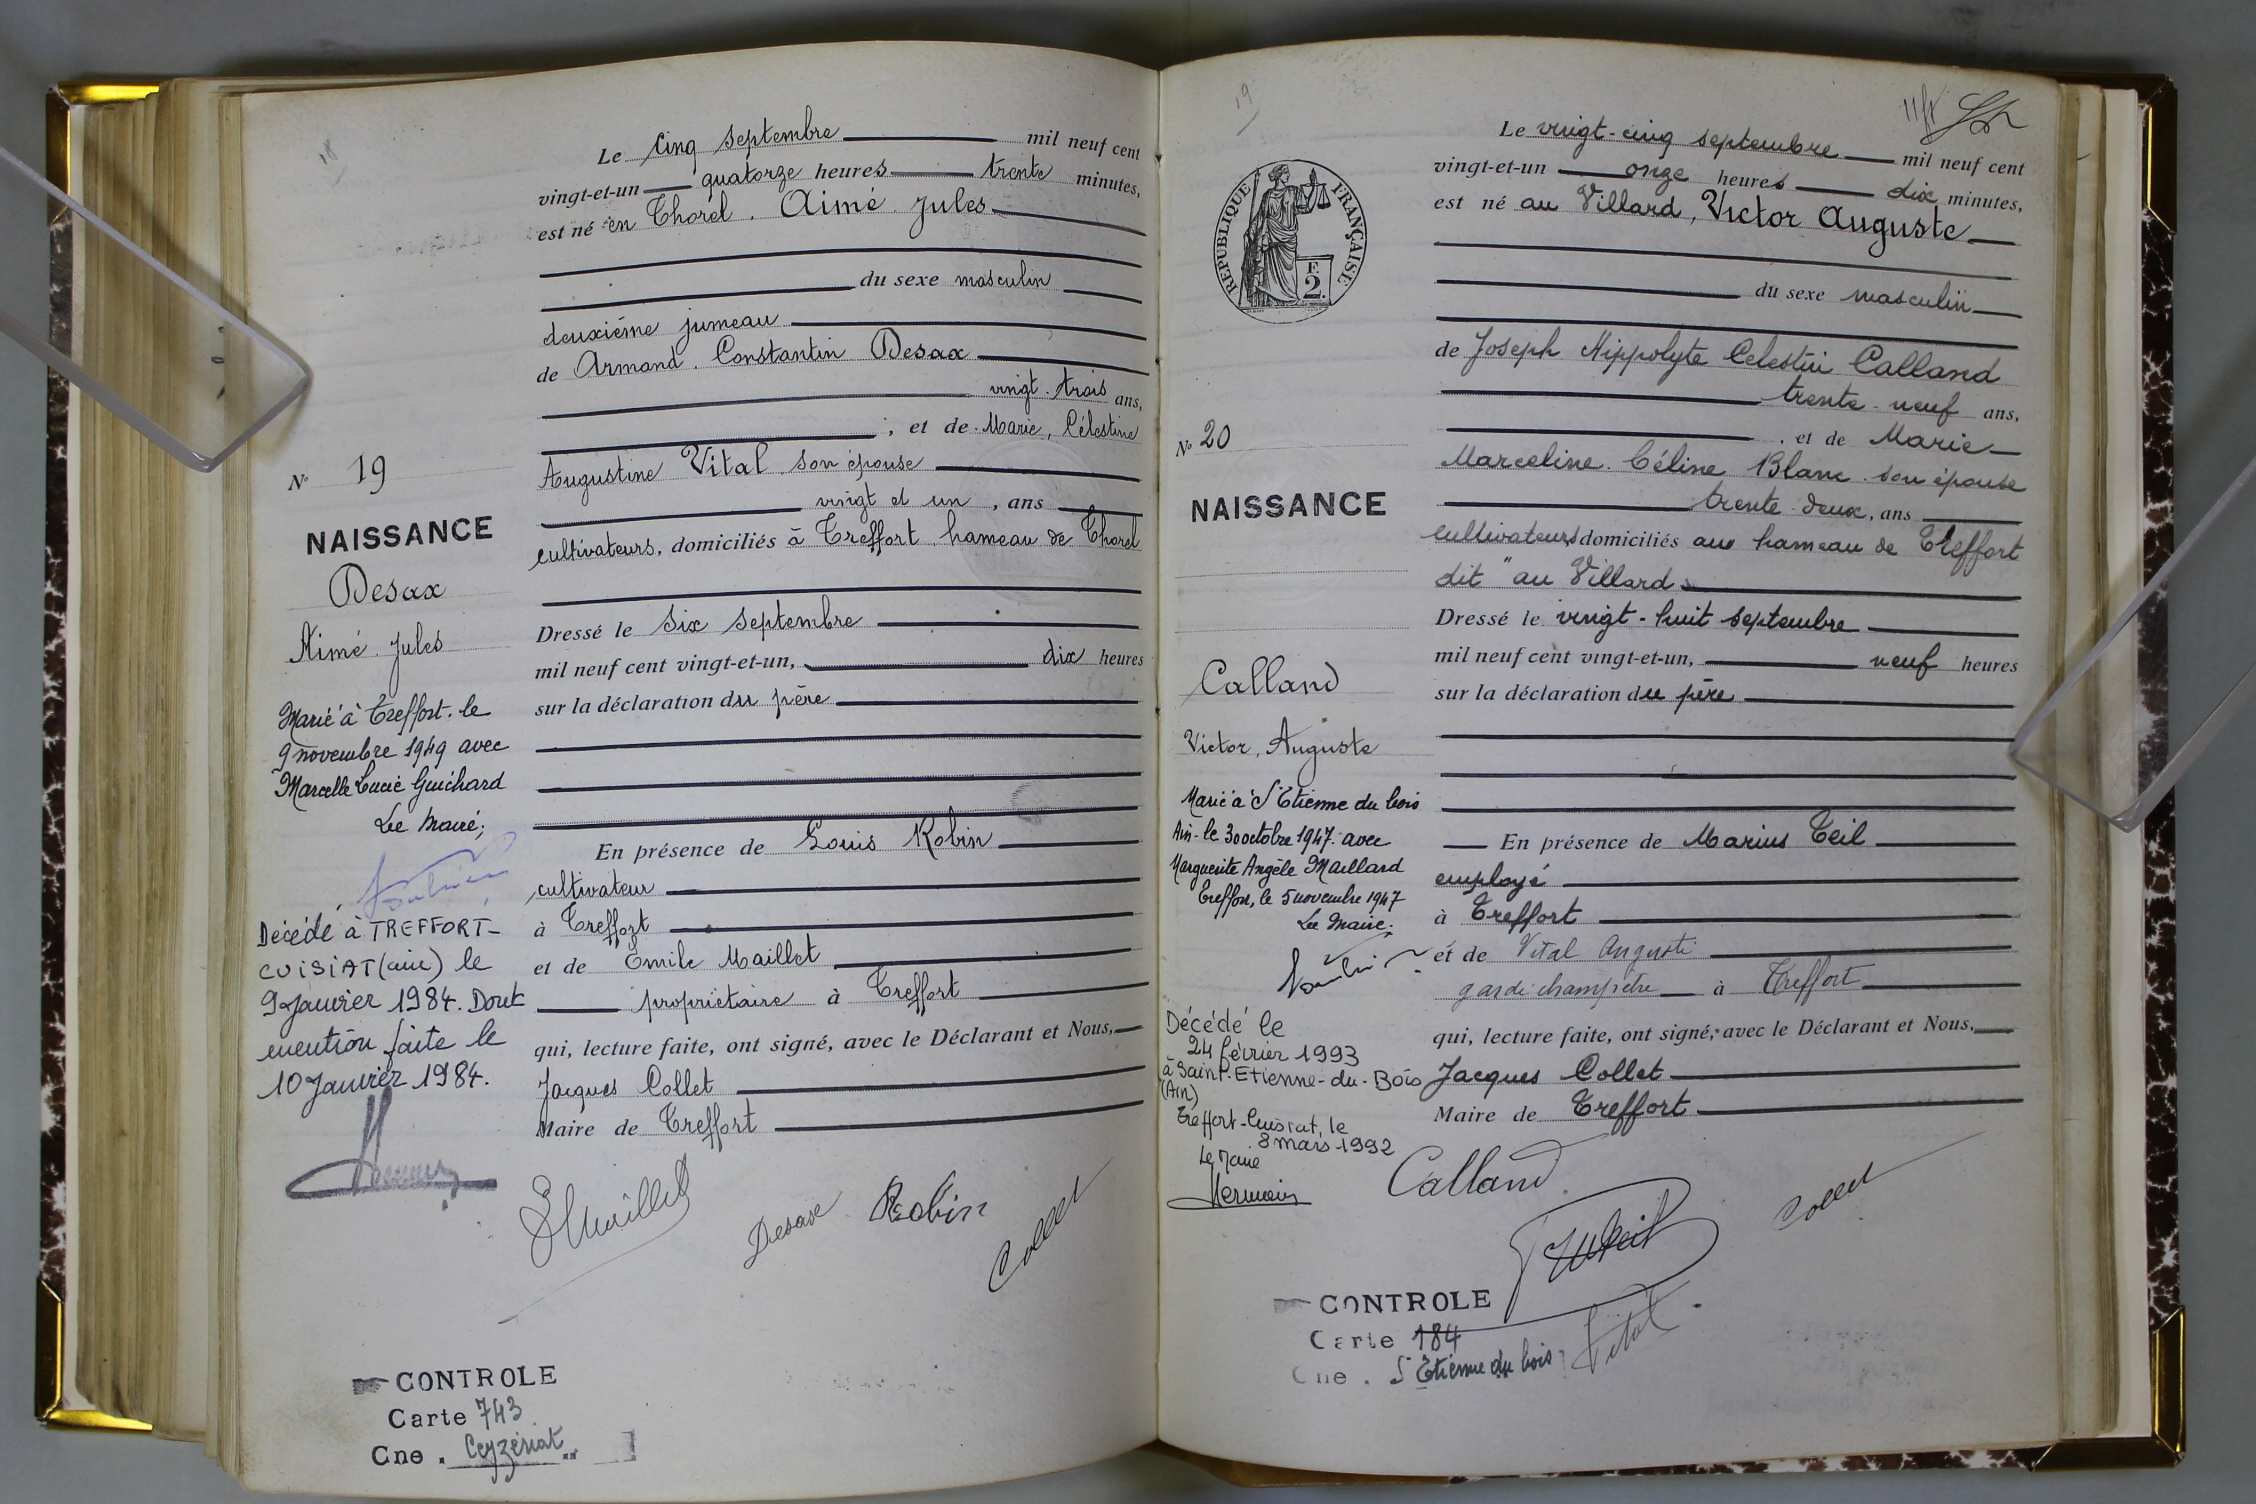 18
Le cinq septembre mil neuf cent
vingt-et-un quatorze heures trente minutes,
est né en Thorel. Aimé. Jules
du sexe masculin
deuxième jumeau
de Armand. Constantin Desax
vingt-trois ans,
, et de Marie, Célestine
Augustine Vital son épouse
vingt et un, ans
cultivateurs, domiciliés à Treffort hameau de Thorel
Dressé le six septembre
mil neuf cent vingt-et-un, dix heures
sur la déclaration du père
En présence de Louis Robin
cultivateur
à Treffort
et de Emile Maillet
propriétaire à Treffort
qui, lecture faite, ont signé, avec le Déclarant et Nous,
Jacques Collet
Maire de Treffort
EMaillet
Desaxe
Robin
Collet
N° 19
NAISSANCE
Desax
Aimé. Jules
Marié à Treffort. le
9 novembre 1949 avec
Marcelle Lucie Guichard
Le Maire,
Décédé à TREFFORT-
CUISIAT (ain) le
9 Janvier 1984. Dont
mention faite le
10 Janvier 1984.
CONTROLE
Carte 743
Cne. Ceyzériat
19
REPUBLIQUE FRANÇAISE
F.
2.
Le vingt-cinq septembre mil neuf cent
vingt-et-un onze heures dix minutes,
est né au Villard, Victor Auguste
du sexe masculin
de Joseph Hippolyte Celestin Calland
trente-neuf ans,
, et de Marie
Marceline. Céline Blanc son épouse
trente-deux, ans
cultivateurs domiciliés au hameau de Treffort
dit "au Villard"
Dressé le vingt-huit septembre
mil neuf cent vingt-et-un, neuf heures
sur la déclaration du père
En présence de Marius Teil
employé
à Treffort
et de Vital Auguste
garde champêtre à Treffort
qui, lecture faite, ont signé, avec le Déclarant et Nous,
Jacques Collet
Maire de Treffort
Calland
Collet
Vital
N° 20
NAISSANCE
Calland
Victor, Auguste
Marié à St Etienne du bois
Ain - le 30 octobre 1947. avec
Marguerite Angèle Maillard
Treffort, le 5 novembre 1947
Le Maire.
Décédé le
24 février 1993
à Saint-Etienne-du-Bois
(Ain)
Treffort-Cuisiat, le
8 mars 1992
Le Maire
CONTROLE
Carte 184
Cne. St Etienne du bois